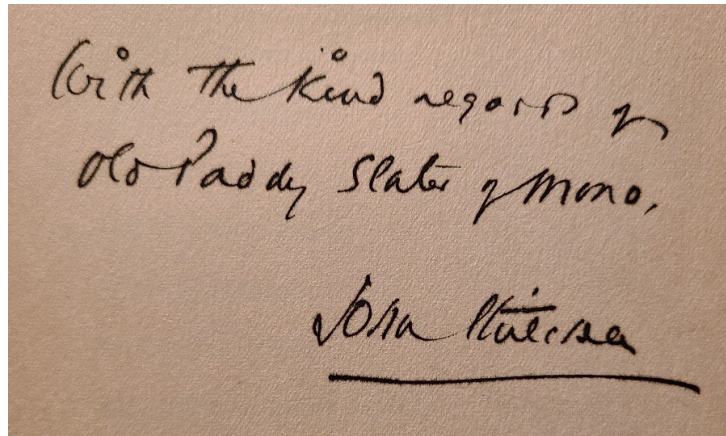 With the kind regards of
Old Paddy Slater of Mono.
John Mitchell